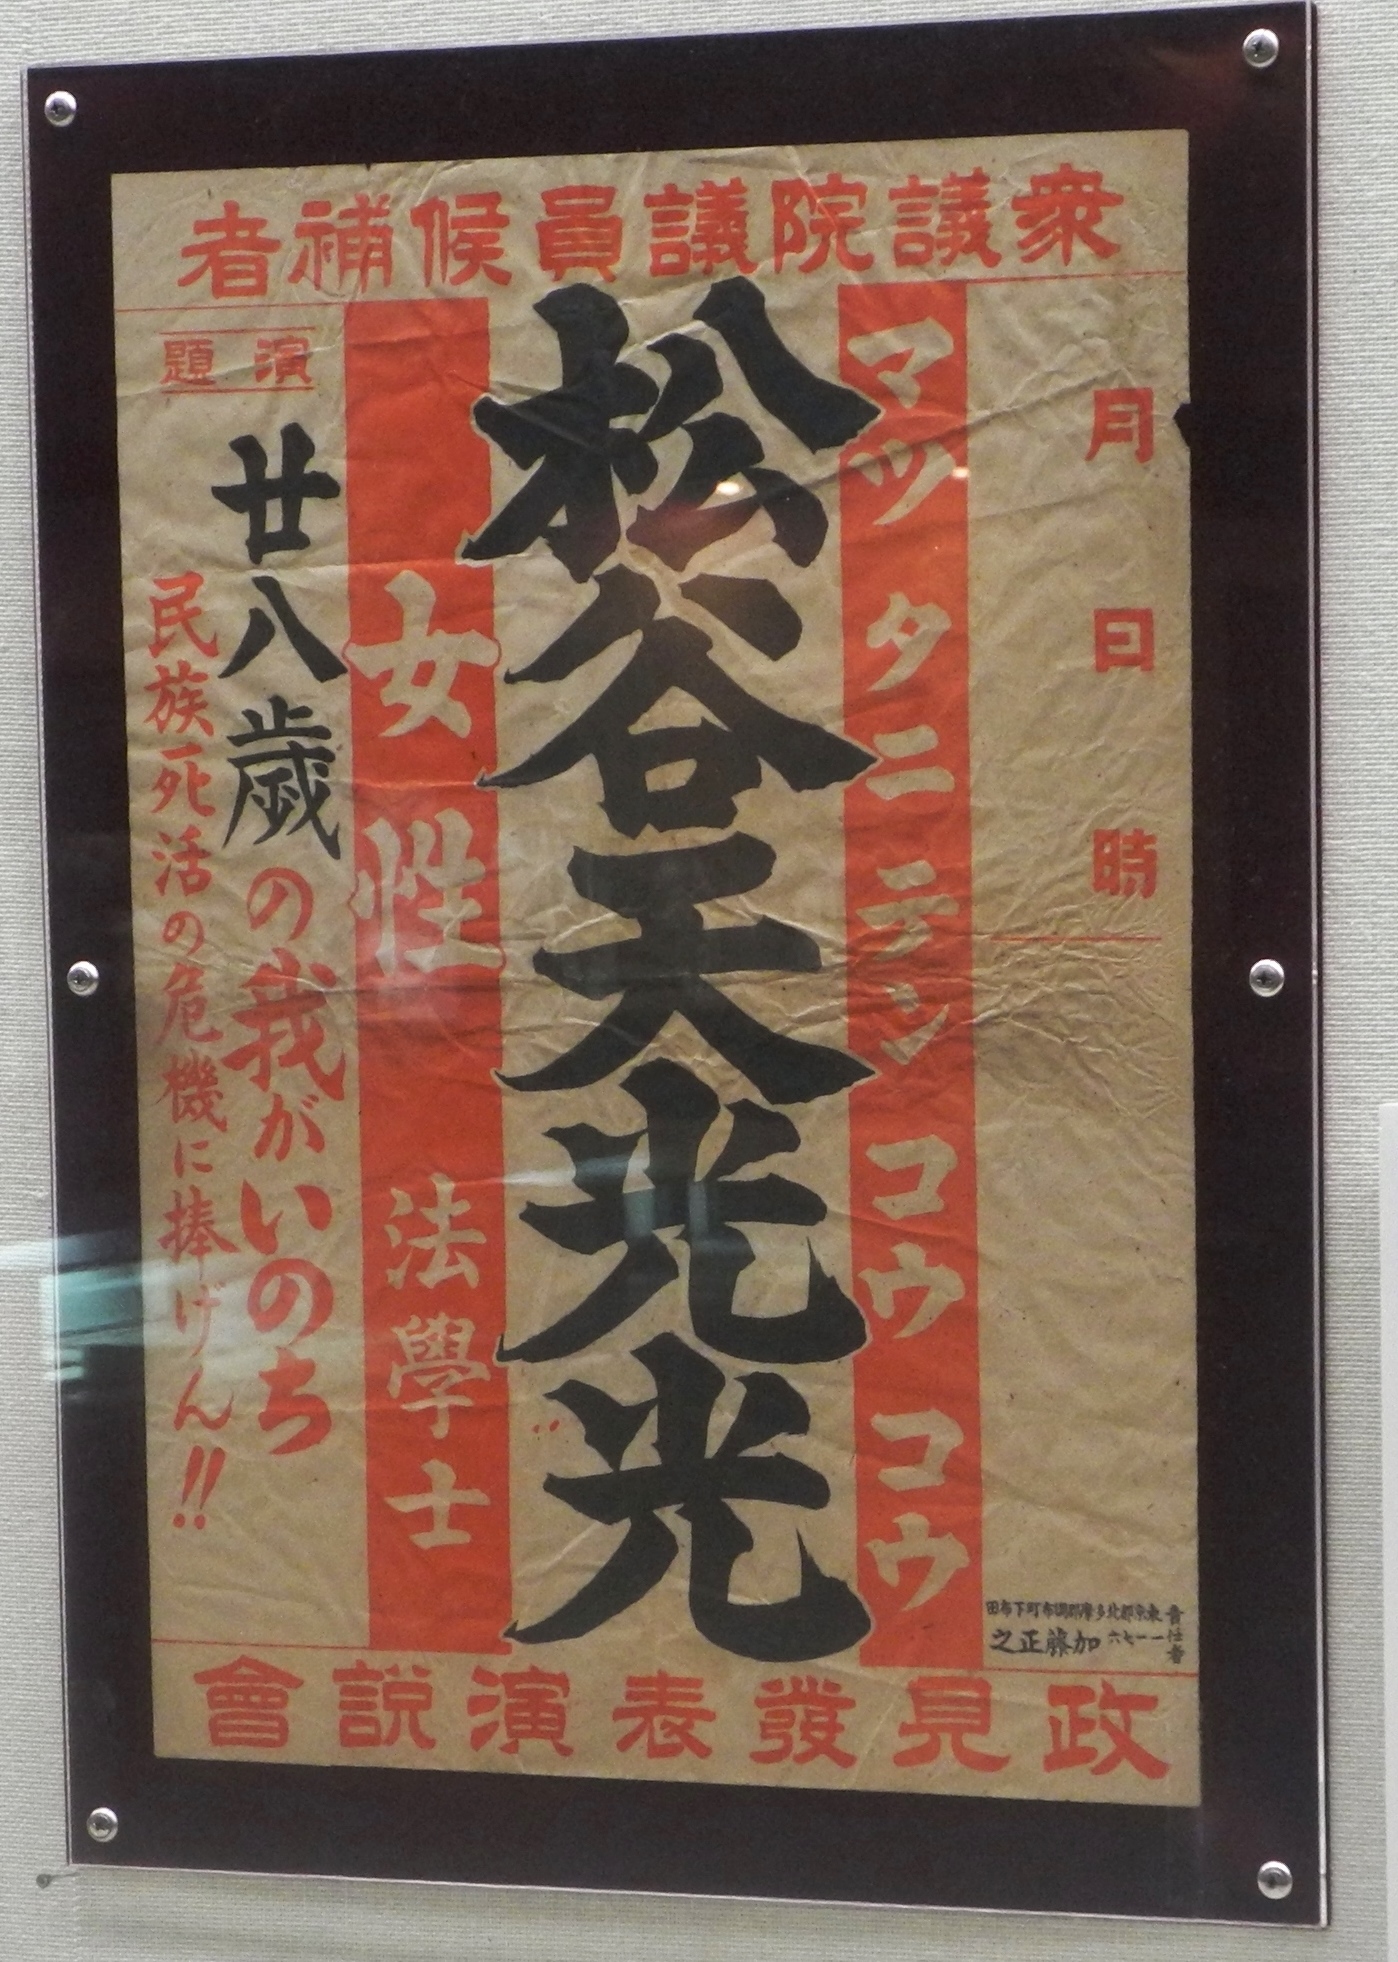 衆議院議員候補者
月 日 時
マツタニテンコウコウ
松谷天光光
女性 法學士
演題
廿八歲の我がいのち
民族死活の危機に捧げん!!
責任者
東京都北多摩郡調布町下布田
一一七六
加藤正之
政見發表演説會